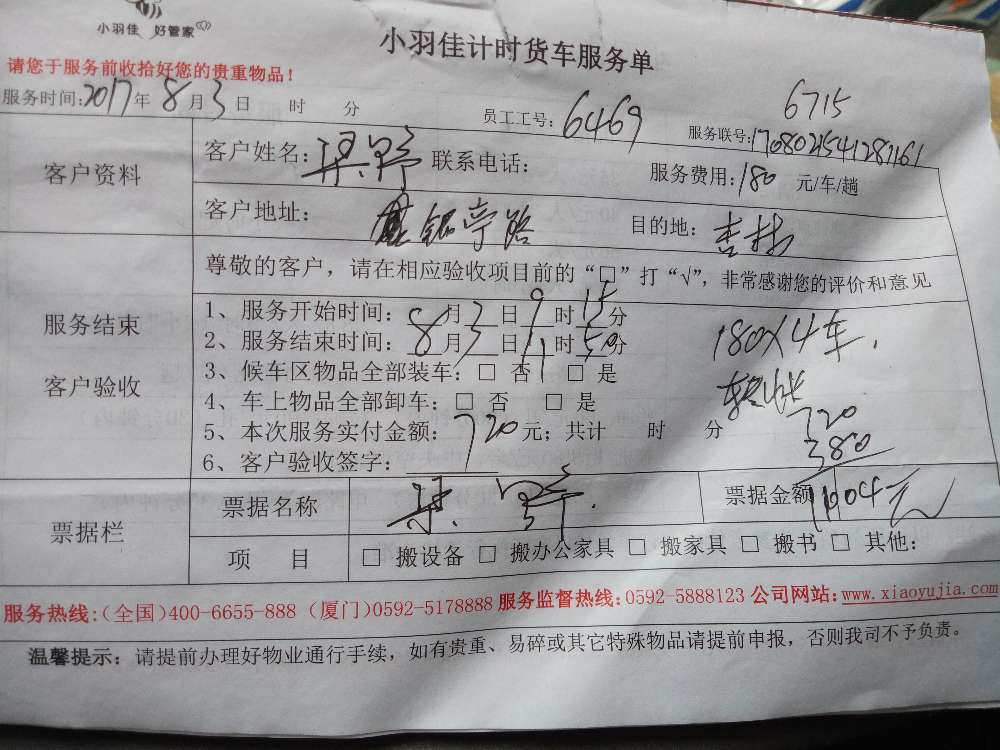 小羽佳 好管家
小羽佳计时货车服务单
请您于服务前收拾好您的贵重物品！
6715
服务时间:2017年8月3日 时 分 员工工号:6469 服务联号:1708021541281161
客户资料 客户姓名: 联系电话: 服务费用:180 元/车/趟
客户地址: 银亭路 目的地:
服务结束 客户验收
尊敬的客户，请在相应验收项目前的“□”打“√”，非常感谢您的评价和意见
1、服务开始时间:8月3日9时15分
2、服务结束时间:8月3日11时50分
180×4车.
3、候车区物品全部装车:□ 否 □ 是
4、车上物品全部卸车:□ 否 □ 是
720
5、本次服务实付金额:720元；共计 时 分
380
6、客户验收签字:
票据栏 票据名称 票据金额 1104元
项 目 □ 搬设备 □ 搬办公家具 □ 搬家具 □ 搬书 □ 其他:
服务热线:(全国)400-6655-888 (厦门)0592-5178888 服务监督热线:0592-5888123 公司网站:www.xiaoyujia.com
温馨提示: 请提前办理好物业通行手续，如有贵重、易碎或其它特殊物品请提前申报，否则我司不予负责。